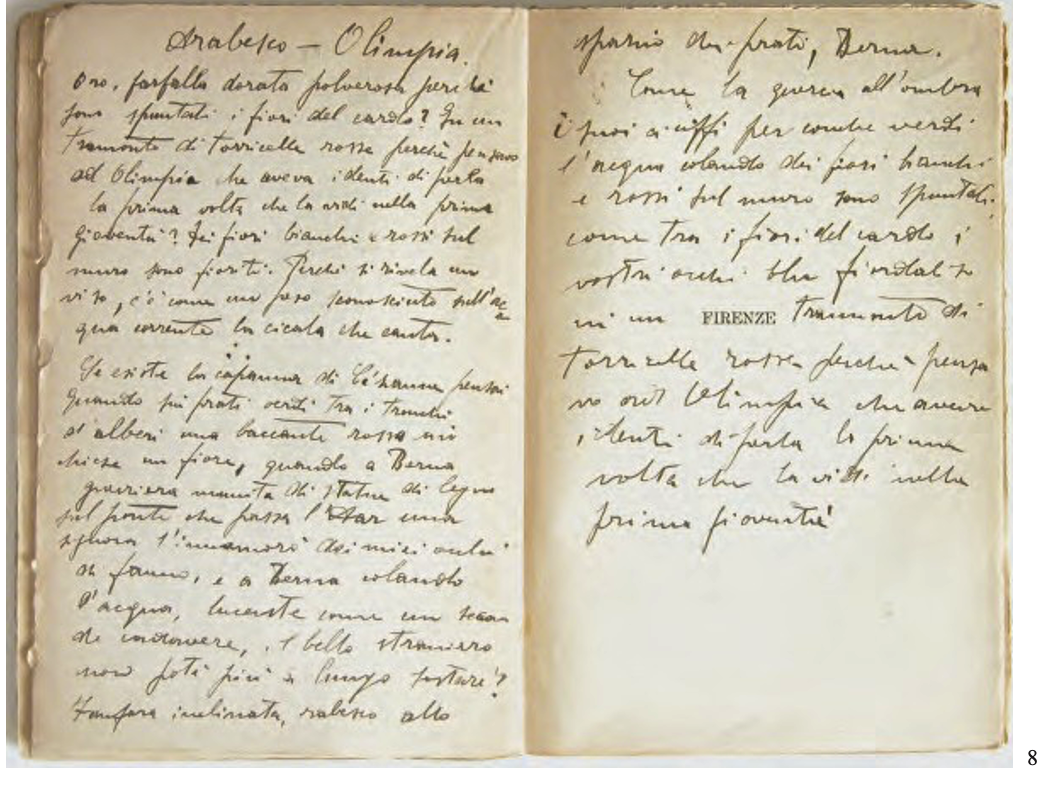 Arabesco — Olimpia.
Oro, farfalla dorata polverosa perchè
sono spuntati i fiori del cardo? In un
tramonto di torricelle rosse perchè pensavo
ad Olimpia che aveva i denti di perla
la prima volta che la vidi nella prima
gioventù? Dei fiori bianchi e rossi sul
muro sono fioriti. Perchè si rivela un
viso, c'è come un peso sconosciuto sull'ac
qua corrente la cicala che canta.
Se esiste la capanna di Cézanne pensai
quando sui prati verdi tra i tronchi
d'alberi una baccante rossa mi
chiese un fiore, quando a Berna
guerriera munita di statue di legno
sul ponte che passa l'Aar una
signora s'innamorò dei miei occhi
di fauno, e a Berna colando
l'acqua, lucente come un secon
do candore, il bello straniero
non potè più a lungo sostare?
Fanfara inclinata, rabesco allo
spazio dei prati, Berna.
Come la quercia all'ombra
i suoi ciuffi per conche verdi
l'acqua colando dei fiori bianchi
e rossi sul muro sono spuntati,
come tra i fiori del cardo i
vostri occhi blu fiordaliso
in un FIRENZE tramonto di
torricelle rosse perchè pensa
vo ad Olimpia che aveva
i denti di perla la prima
volta che la vidi nella
prima gioventù
8